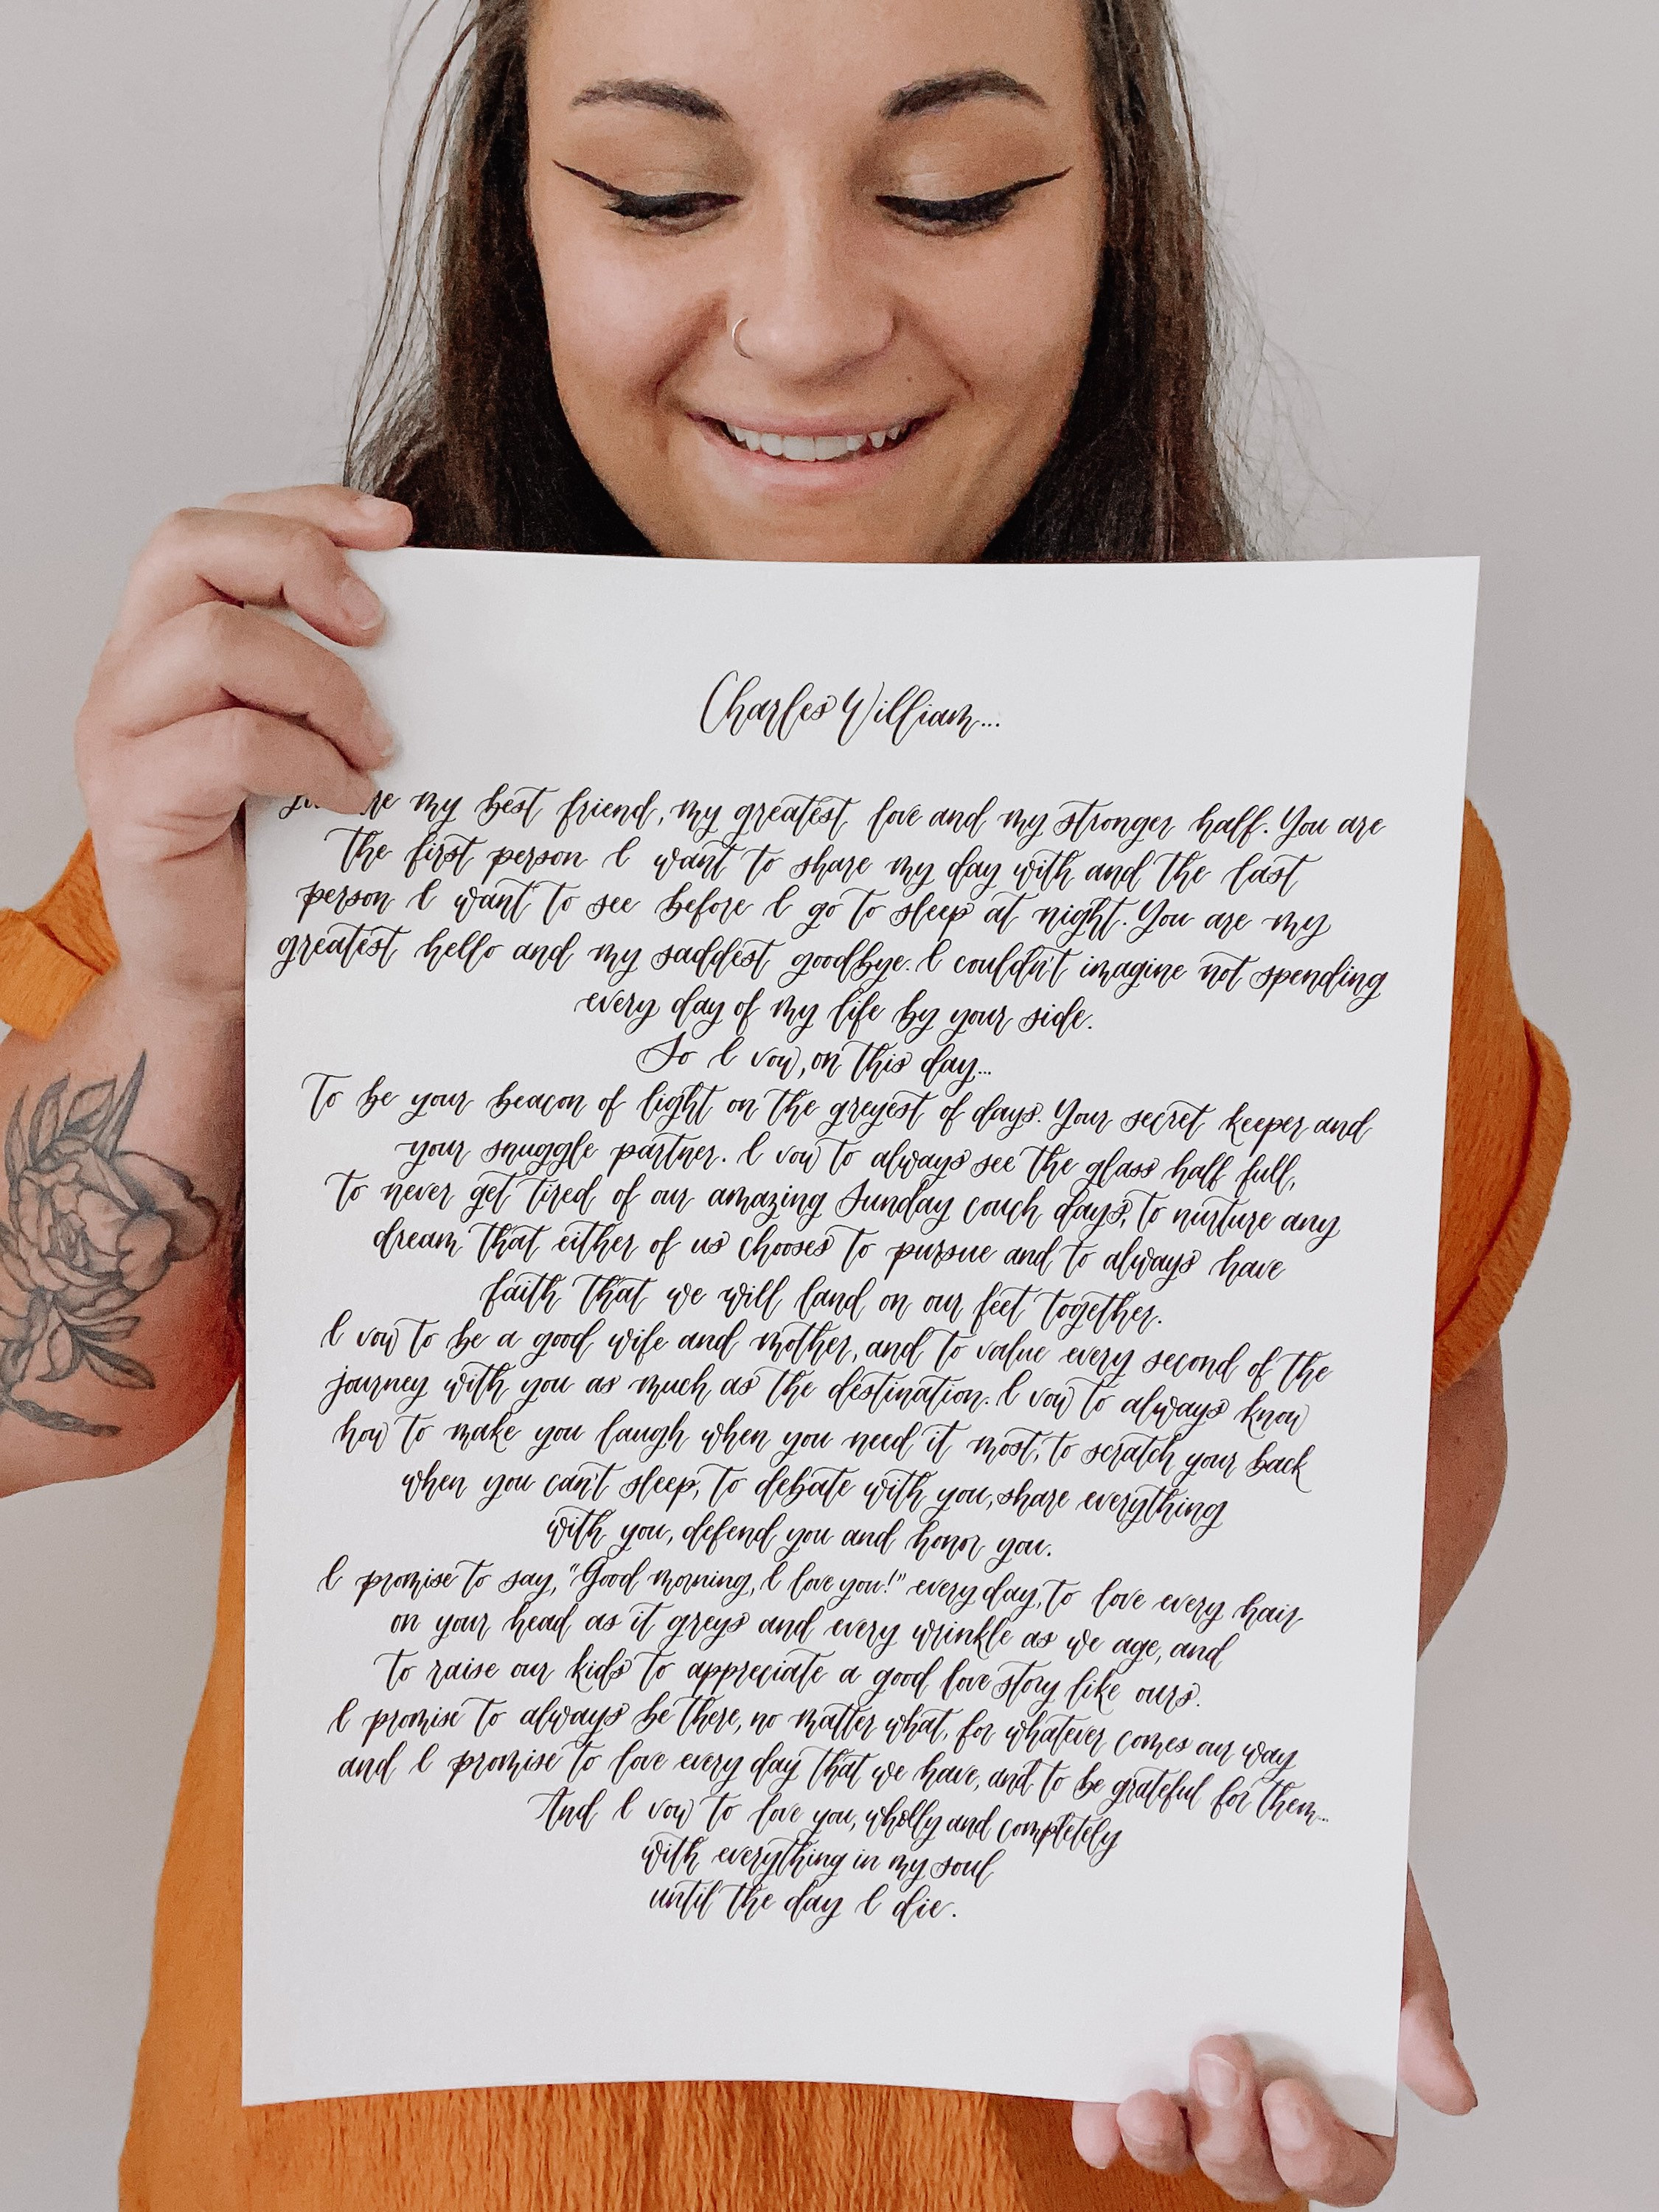 Charles William...
my best friend, my greatest love and my stronger half. You are
the first person I want to share my day with and the last
person I want to see before I go to sleep at night. You are my
greatest hello and my saddest goodbye. I couldn't imagine not spending
every day of my life by your side.
So I vow, on this day...
To be your beacon of light on the greyest of days. Your secret keeper and
your snuggle partner. I vow to always see the glass half full,
to never get tired of our amazing Sunday couch days, to nurture any
dream that either of us chooses to pursue and to always have
faith that we will land on our feet together.
I vow to be a good wife and mother, and to value every second of the
journey with you as much as the destination. I vow to always know
how to make you laugh when you need it most, to scratch your back
when you can't sleep, to debate with you, share everything
with you, defend you and honor you.
I promise to say, "Good morning, I love you!" every day, to love every hair
on your head as it greys and every wrinkle as we age, and
to raise our kids to appreciate a good love story like ours.
I promise to always be there, no matter what, for whatever comes our way
and I promise to love every day that we have, and to be grateful for them...
And I vow to love you, wholly and completely
with everything in my soul
until the day I die.